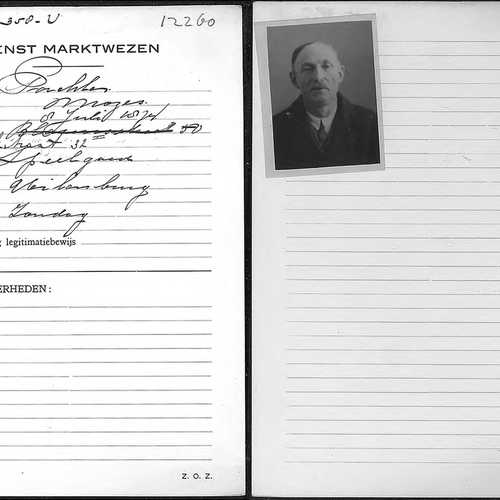 350-U 12260
ENST MARKTWEZEN
Mozes
8 Juli
straat 32
Speelgoed
Uilenburg
Zondag
g legitimatiebewijs
ERHEDEN:
Z. O. Z.